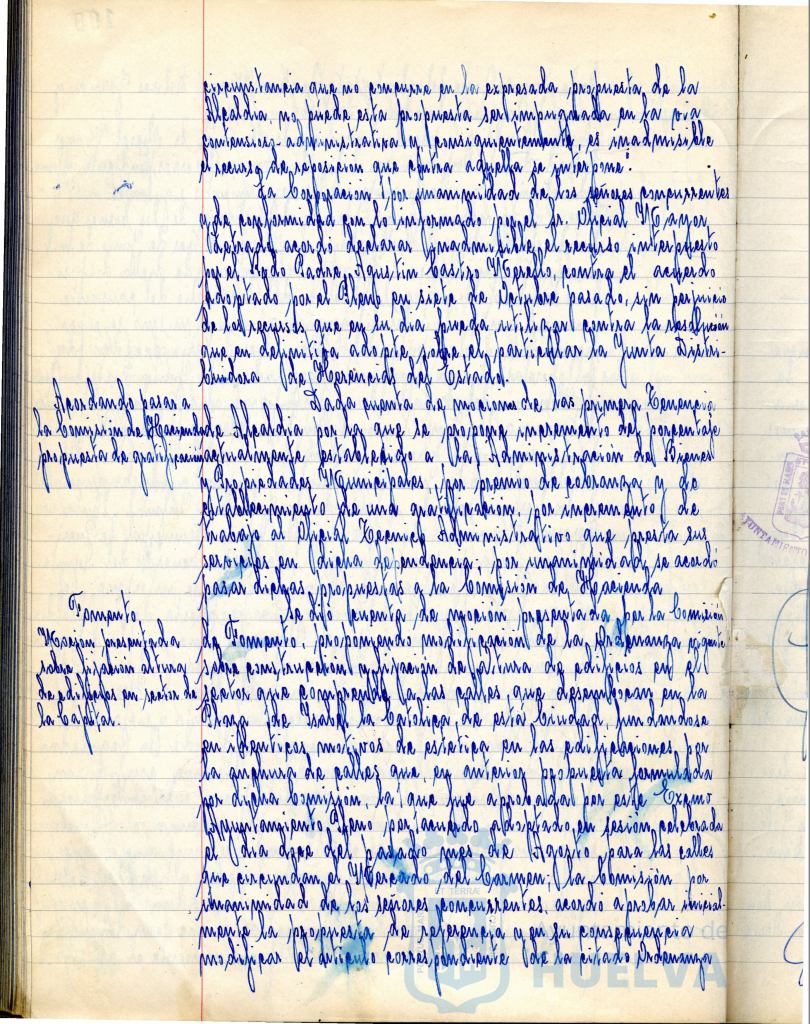 circunstancia que no concurre en la expresada propuesta de la
Alcaldia, no puede esta propuesta ser impugnada en la via
contencioso-administrativa y, consiguientemente, es inadmisible
el recurso de reposición que contra aquella se interpone".
La Corporación por unanimidad de los señores concurrentes
y de conformidad con lo informado por el Sr. Oficial Mayor
Letrado acordó declarar inadmisible el recurso interpuesto
por el Rvdo Padre Agustin Castro Merello, contra el acuerdo
adoptado por el Pleno en siete de Octubre pasado, sin perjuicio
de los recursos que en su dia pueda utilizar contra la resolución
que en definitiva adopte sobre el particular la Junta Distri-
buidora de Herencias del Estado.
Acordando pasar a
la Comisión de Hacienda
propuesta de gratificación
Dada cuenta de mociones de la primera Tenencia
de Alcaldia por la que se propone incremento del porcentaje
actualmente establecido a la Administración de Bienes
y Propiedades Municipales, por premio de cobranza y de
establecimiento de una gratificación, por incremento de
trabajo al Oficial Tecnico Administrativo que presta sus
servicios en dicha dependencia, por unanimidad se acordó
pasar dichas propuestas a la Comisión de Hacienda
Fomento.
Moción presentada
sobre fijación alturas
de edificios en sector de
la Capital.
Se dió cuenta de moción presentada por la Comisión
de Fomento, proponiendo modificación de la Ordenanza vigente
sobre construcción y fijación de altura de edificios en el
sector que comprende a las calles que desembocan en la
Plaza de Isabel la Catolica, de esta Ciudad, fundandose
en identicos motivos de estetica en las edificaciones por
la anchura de calles que, en anterior propuesta formulada
por dicha Comisión, la que fue aprobada por este Excmo
Ayuntamiento Pleno por acuerdo adoptado en sesión celebrada
el dia doce del pasado mes de Agosto para las calles
que circundan el Mercado del Carmen, la Comisión por
unanimidad de los señores concurrentes, acordo aprobar inicial-
mente la propuesta de referencia y en su consecuencia
modificar el articulo correspondiente de la citada Ordenanza
HUELVA